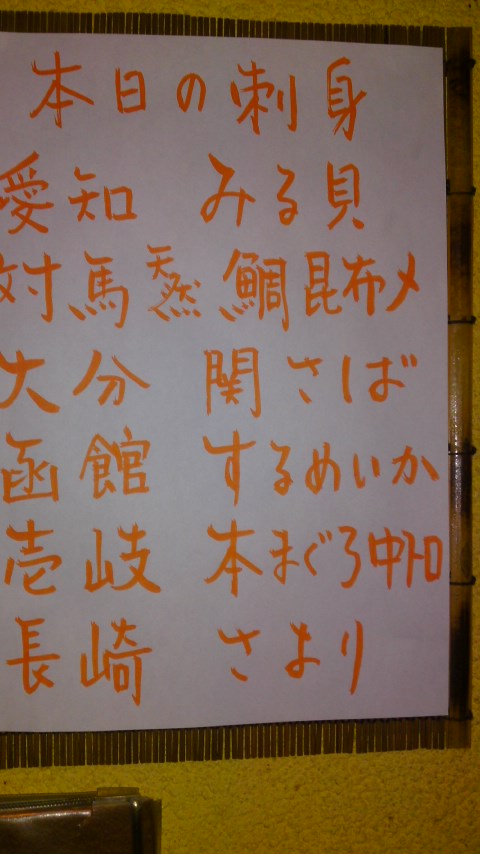 本日の刺身
愛知 みる貝
対馬 天然 鯛昆布〆
大分 関さば
函館 するめいか
壱岐 本まぐろ中トロ
長崎 さより